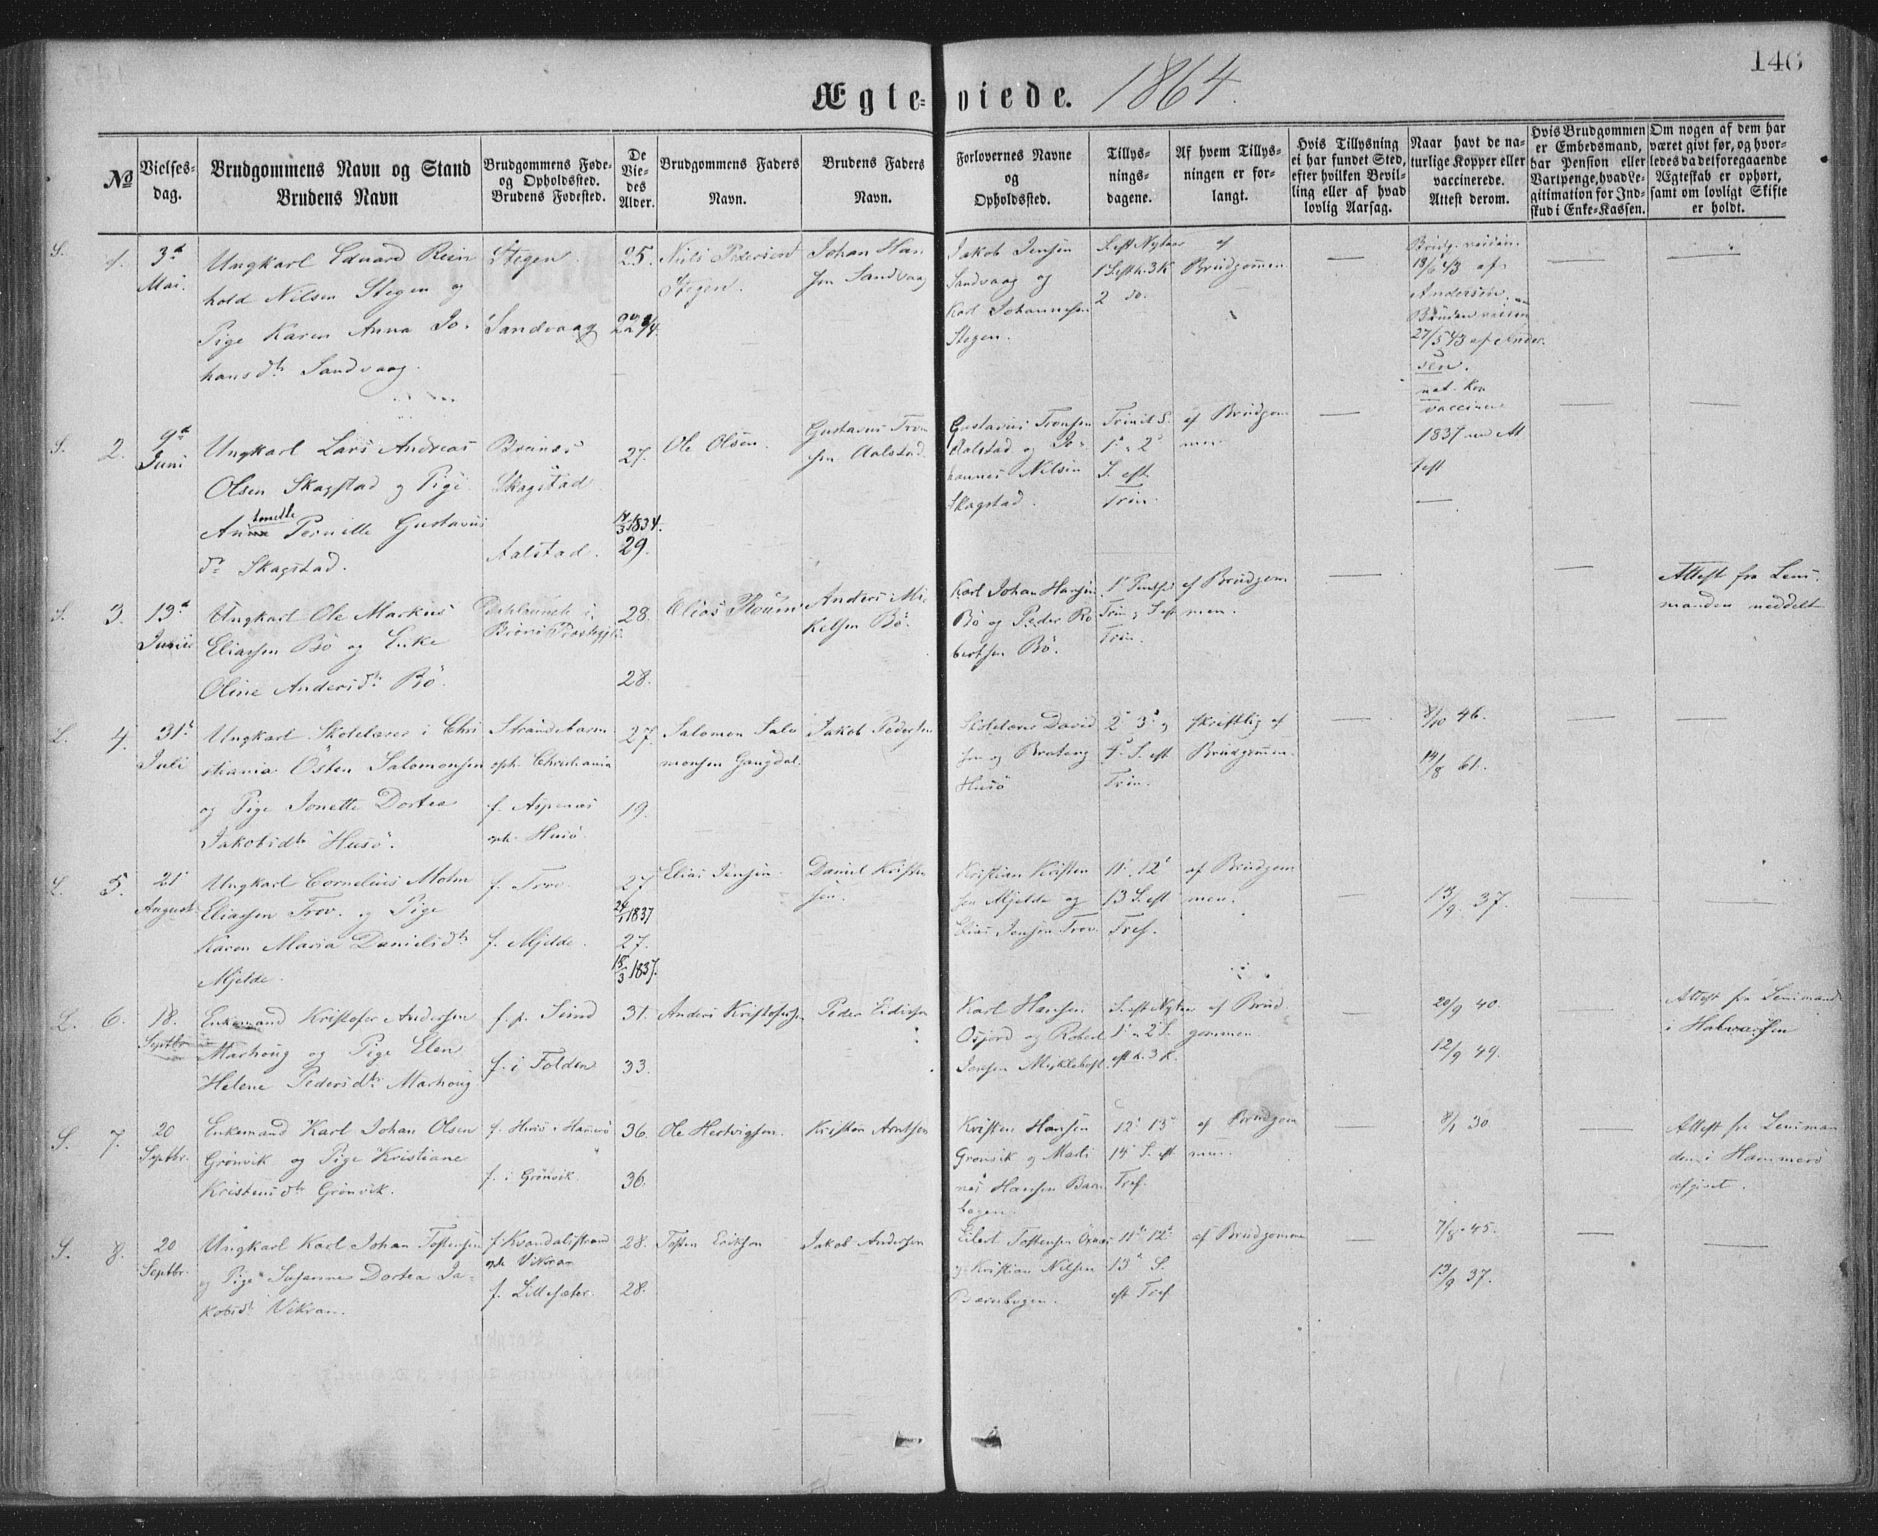 146
Ægteviede. 1864.
No
Vielses-
dag.
Brudgommens Navn og Stand
Brudens Navn
Brudgommens Føde-
og Opholdssted.
Brudens Fødested.
De
Vie-
des
Alder.
Brudgommens Faders
Navn.
Brudens Faders
Navn.
Forlovernes Navne
og
Opholdssted.
Tillys-
nings-
dagene.
Af hvem Tillys-
ningen er for-
langt.
Hvis Tillysning
ei har fundet Sted,
efter hvilken Bevil-
ling eller af hvad
lovlig Aarsag.
Naar havt de na-
turlige Kopper eller
vaccinerede.
Attest derom.
Hvis Brudgommen
er Embedsmand,
har Pension eller
Vartpenge, hvad Le-
gitimation for Ind-
skud i Enke-Kassen.
Om nogen af dem har
været givt før, og hvor-
ledes da det foregaaende
Ægteskab er ophørt,
samt om lovligt Skifte
er holdt.
S. 1. 3d
Mai.
Ungkarl Eduard Rein
hold Nilsen Stegen og
Pige Karen Anna Jo-
hansdtr Sandvaag.
Stegen.
Sandvaag
25.
Nils Pedersen
Stegen.
Johan Han
sen Sandvaag
Jakob Jensen
Sandvaag og
Karl Johannesen
Stegen.
S. eft Nytaar
1 S eft h. 3 K
2 do.
af
Brudgommen
—
Brudg. vaccin.
18/6 43 af
Andersen
Bruden vaccin
27/5 43 af Ander
sen.
—
—
S. 2. 9d
Juni
Ungkarl Lars Andreas
Olsen Skagstad og Pige
Antonette Pernille Gustavus
dr Skagstad.
Skagstad
Aalstad.
27.
14/3 1834.
29.
Ole Olsen.
Gustavus Tron
sen Aalstad.
Gustavus Tronsen
Aalstad og Jo-
hannes Nilsen
Skagstad.
Trinit S.
1. 2.
S. eft.
Trin.
af Brudgom
men.
—
nat. Kop
vaccinen
1837 ved At
test
—
—
S. 3. 13d
Junii
Ungkarl Ole Markus
Eliassen Bö og Enke
Oline Andersdtr Bö.
28.
28.
Elias
Anders Mi-
kelsen Bö.
Karl Johan Hansen
Bö og Peder Ro
bertsen Bö.
Trin og S eft
Trin.
af Brudgom
men.
—
—
Attest fra Lens-
manden meddelt
L. 4. 31t
Juli
Ungkarl Skolelærer i Chri
stiania Östen Salomonsen
og Pige Jonette Dortea
Jakobsdtr Husö.
Strandebarm
oph. Christiania
f. Aspenes
oph. Husö.
27.
19.
Salomon Salo
monsen Gangdal.
Jakob Pedersen
Skolelærer David
sen og Bratang
Husö
2. 3. og
4. S. eft
Trin.
skriftlig af
Brudgommen.
—
8/10 46.
14/8 61.
—
—
L. 5. 21
August
Ungkarl Cornelius Molm
Eliassen Trov. og Pige
Karen Maria Danielsdtr
Mjelde.
f. Trov.
f. Mjelde.
27
24/1 1837
27.
15/3 1837.
Elias Jensen.
Daniel Kristen
sen.
Kristian Kristen
sen Mjelde og
Elias Jensen Trov.
11. 12.
13 S. eft
Tref.
af Brudgom
men.
—
13/9. 37.
—
—
L. 6. 18.
Septbr.
Enkemand Kristofer Andersen
Marhoug og Pige Elen
Helene Pedersdtr Marhoug
f. i Folden
31.
33.
Anders Kristofersen
Peder Eidissen
Karl Hansen
Osfjord og Robert
Jensen Myklebost
S. eft Nytaar
1. 2 S.
eft h. 3 K.
af Brud
gommen.
—
20/9 40.
12/9 49.
—
Attest fra Lensmand
i
S. 7. 20
Septbr.
Enkemand Karl Johan Olsen
Grönvik og Pige Kristiane
Kristensdtr Grönvik.
f. Husö i Hamerö
f. i Grönvik
36.
36.
Ole Hertvigsen.
Kristen Arntsen
Kristen Hansen
Grönvik og Mari
nus Hansen Barn
bogen.
12. 13.
14 S. eft
Tref.
af Brudgom
men.
—
8/1 30
—
Attest fra Lensman
den i Hammerö
afgivet.
S. 8. 20
Septbr.
Ungkarl Karl Johan Tostensen
og Pige Susanne Dortea Ja-
kobsdr Vikran.
f. Kvandalstrand
oph Vikran
f. Lillesæter.
28.
28.
Tosten Erikson
Jakob Andersen
Eilert Tostensen
og Kristian Nilsen
Bærnbogen.
11. 12.
13. S.
eft Tref
af Brudgommen
—
7/8 45.
13/9 37.
—
—